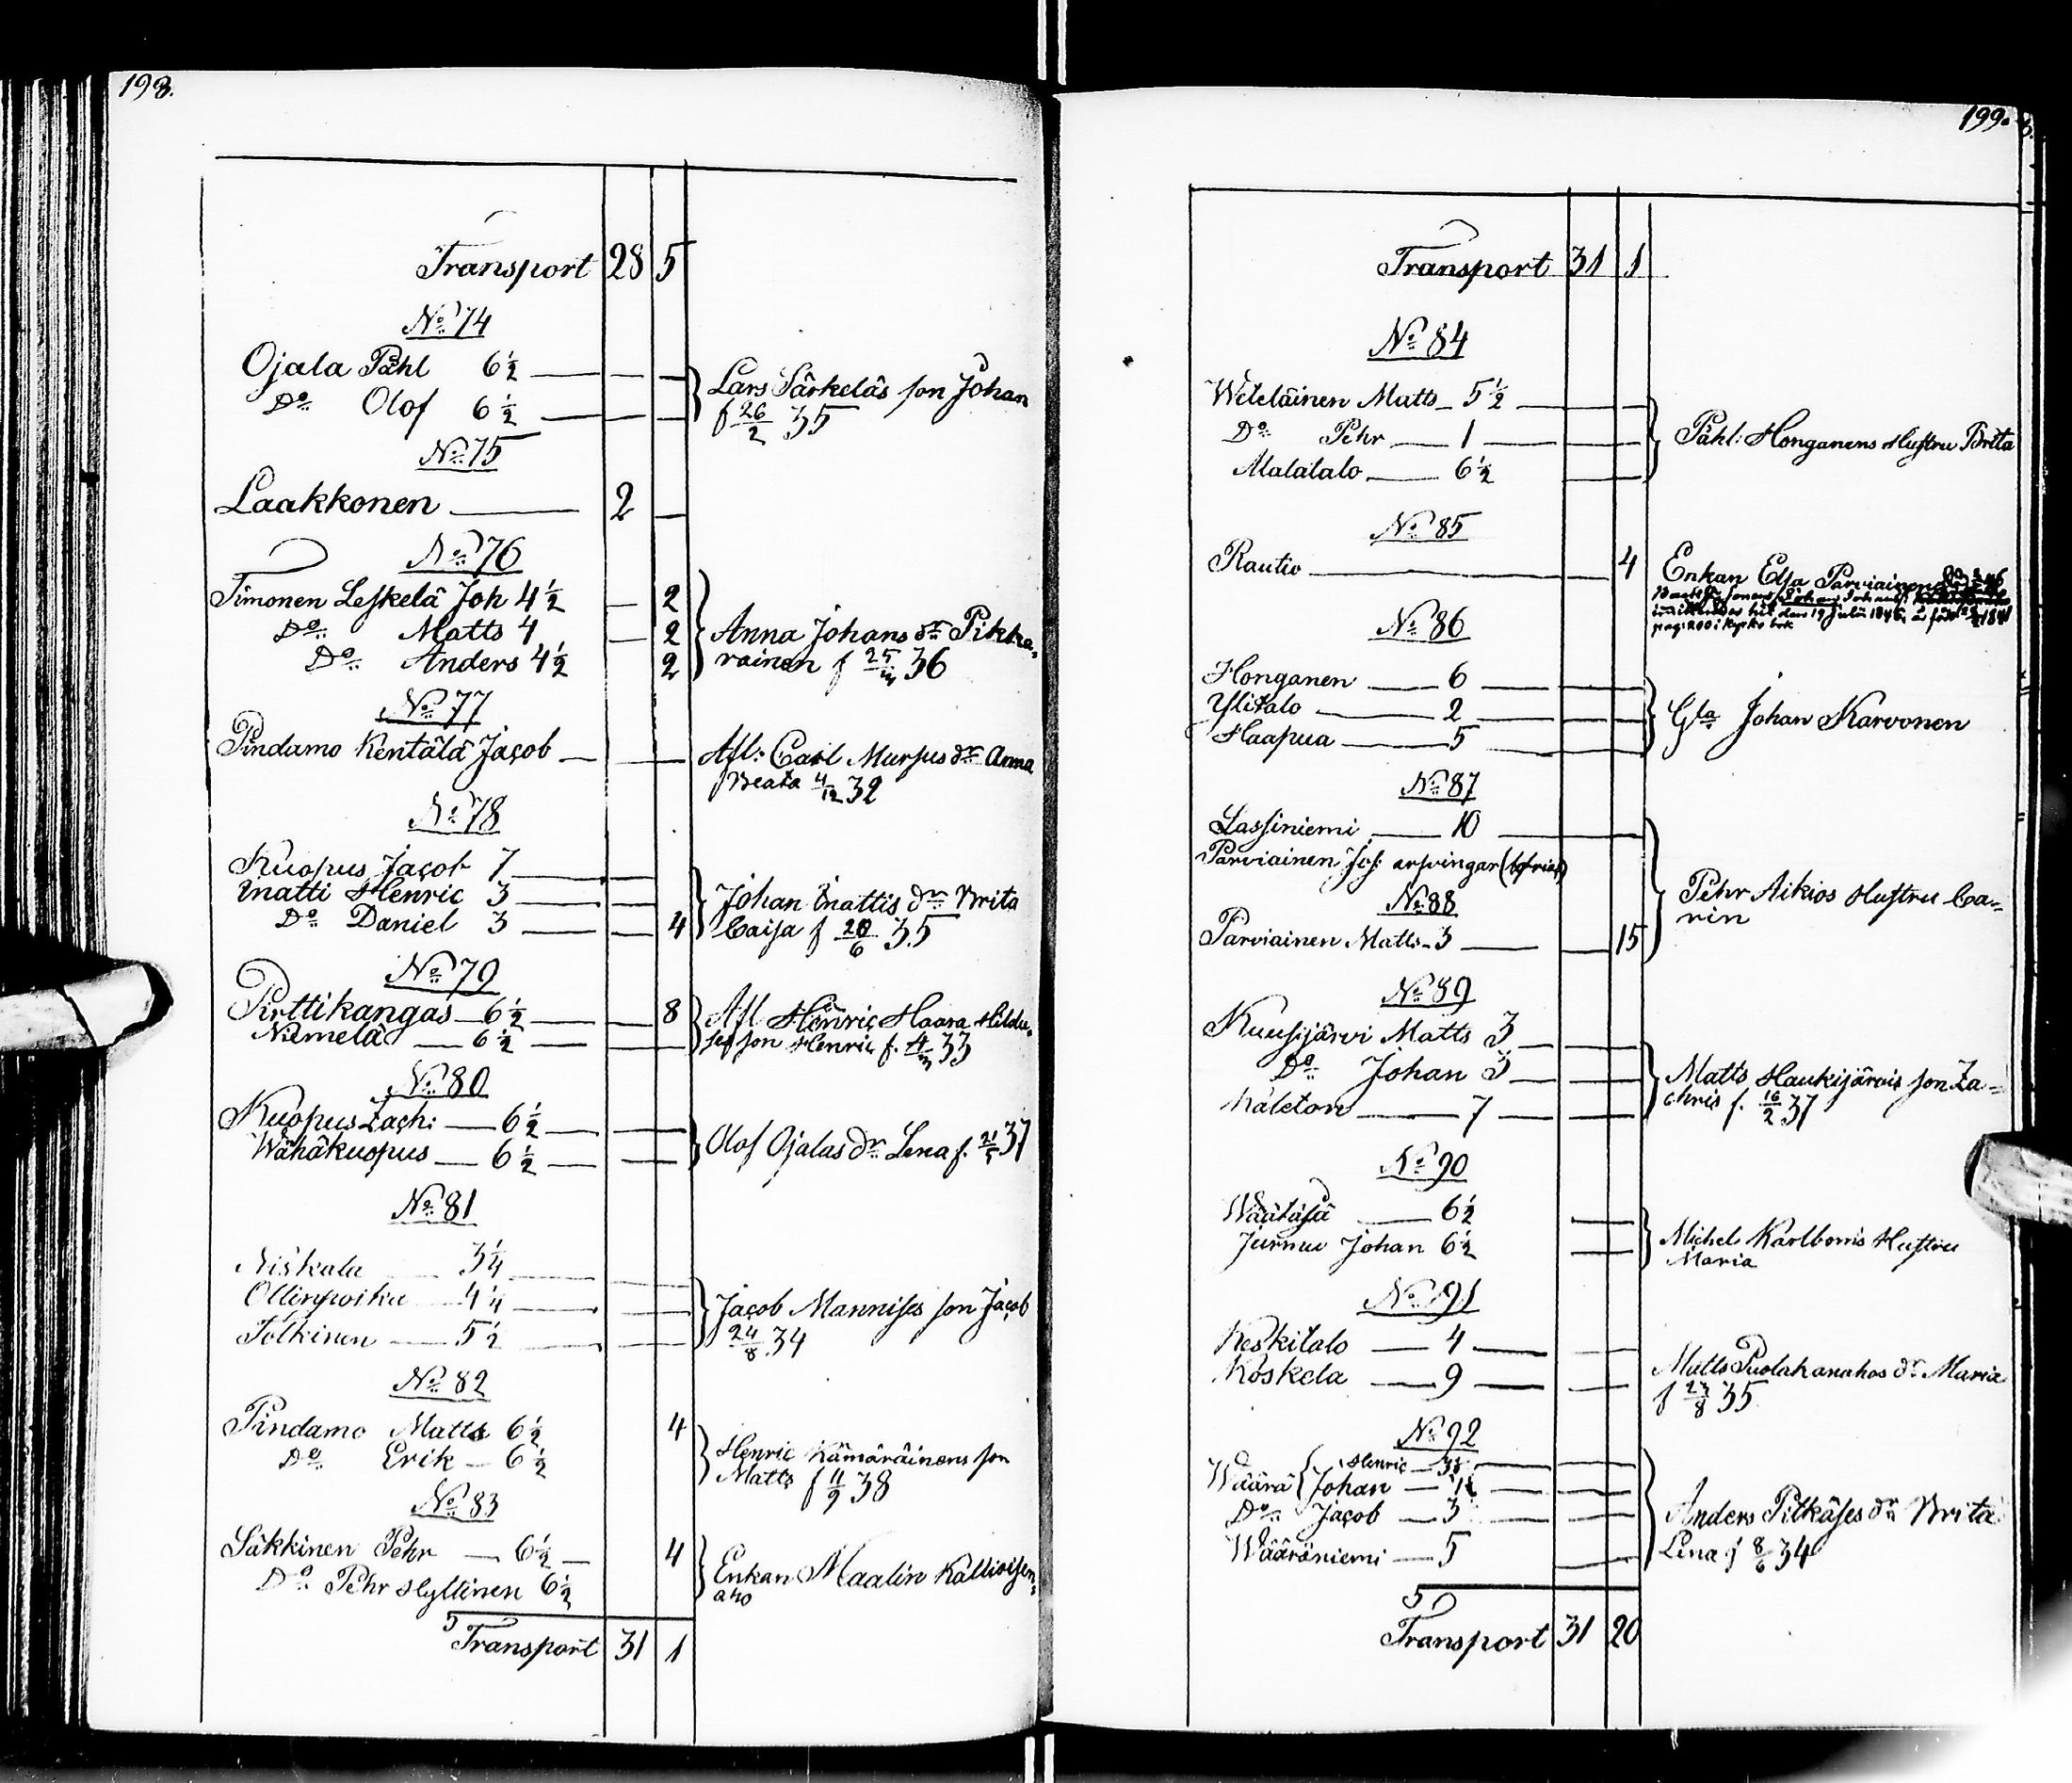 198.
Transport 28 5
No 74
Ojala Påhl 6½
Do Olof 6½
Lars Särkeläs son Johan
f 26/2 35
No 75
Laakkonen 2
No 76
Timonen Leskelä Joh 4½ 2
Do Matts 4 2
Do Anders 4½ 2
Anna Johans dr Pikka-
rainen f 25/ 36
No 77
Pindamo Kentälä Jacob
Afl: Carl Mursus dr Anna
Beata 4/12 32
No 78
Kuopus Jacob 7
Inatti Henric 3
Do Daniel 3 4
Johan Inattis dr Brita
Caisa f 20/6 35
No 79
Pirttikangas 6½ 8
Niemelä 6½
Afl Henric Haara
son Henric f. 4/ 33
No 80
Kuopus Zach: 6½
Wähäkuopus 6½
Olof Ojalas dr Lena f. 21/5 37
No 81
Niskala 3¼
Ollinpoika 4¼
Tolkinen 5½
Jacob Mannises son Jacob
24/8 34
No 82
Pindamo Matts 6½ 4
Do Erik 6½
Henric Kämäräinens son
Matts f 11/9 38
No 83
Säkkinen Pehr 6½ 4
Do Pehr Hyttinen 6½
Enkan Maalin Kallioisen-
aho
Transport 31 1
199.
Transport 31 1
No 84
Weteläinen Matts 5½
Do Pehr 1
Alatalo 6½
Påhl: Honganens Hustru Brita
No 85
Rautio 4
Enkan Elsa Parviainen
pag: 200 i kyrko bok
No 86
Honganen 6
Ylitalo 2
Haapua 5
Gla Johan Karvonen
No 87
Lassiniemi 10
Parviainen Joh: arfvingar
No 88
Parviainen Matts 3 15
Pehr Aikios Hustru Ca-
rin
No 89
Kuusijärvi Matts 3
Do Johan 3
Kaleton 7
Matts Haukijärvis son Za-
chris f. 16/2 37
No 90
Wäätäjä 6½
Jurmu Johan 6½
Michel Karlboms Hustru
Maria
No 91
Keskitalo 4
Koskela 9
Matts Puolakanahos dr Maria
f 23/8 35
No 92
Wäärä Henric
Johan
Do Jacob 3
Wääräniemi 5
Anders Pitkäses dr Brita
Lena f 8/6 34
Transport 31 20